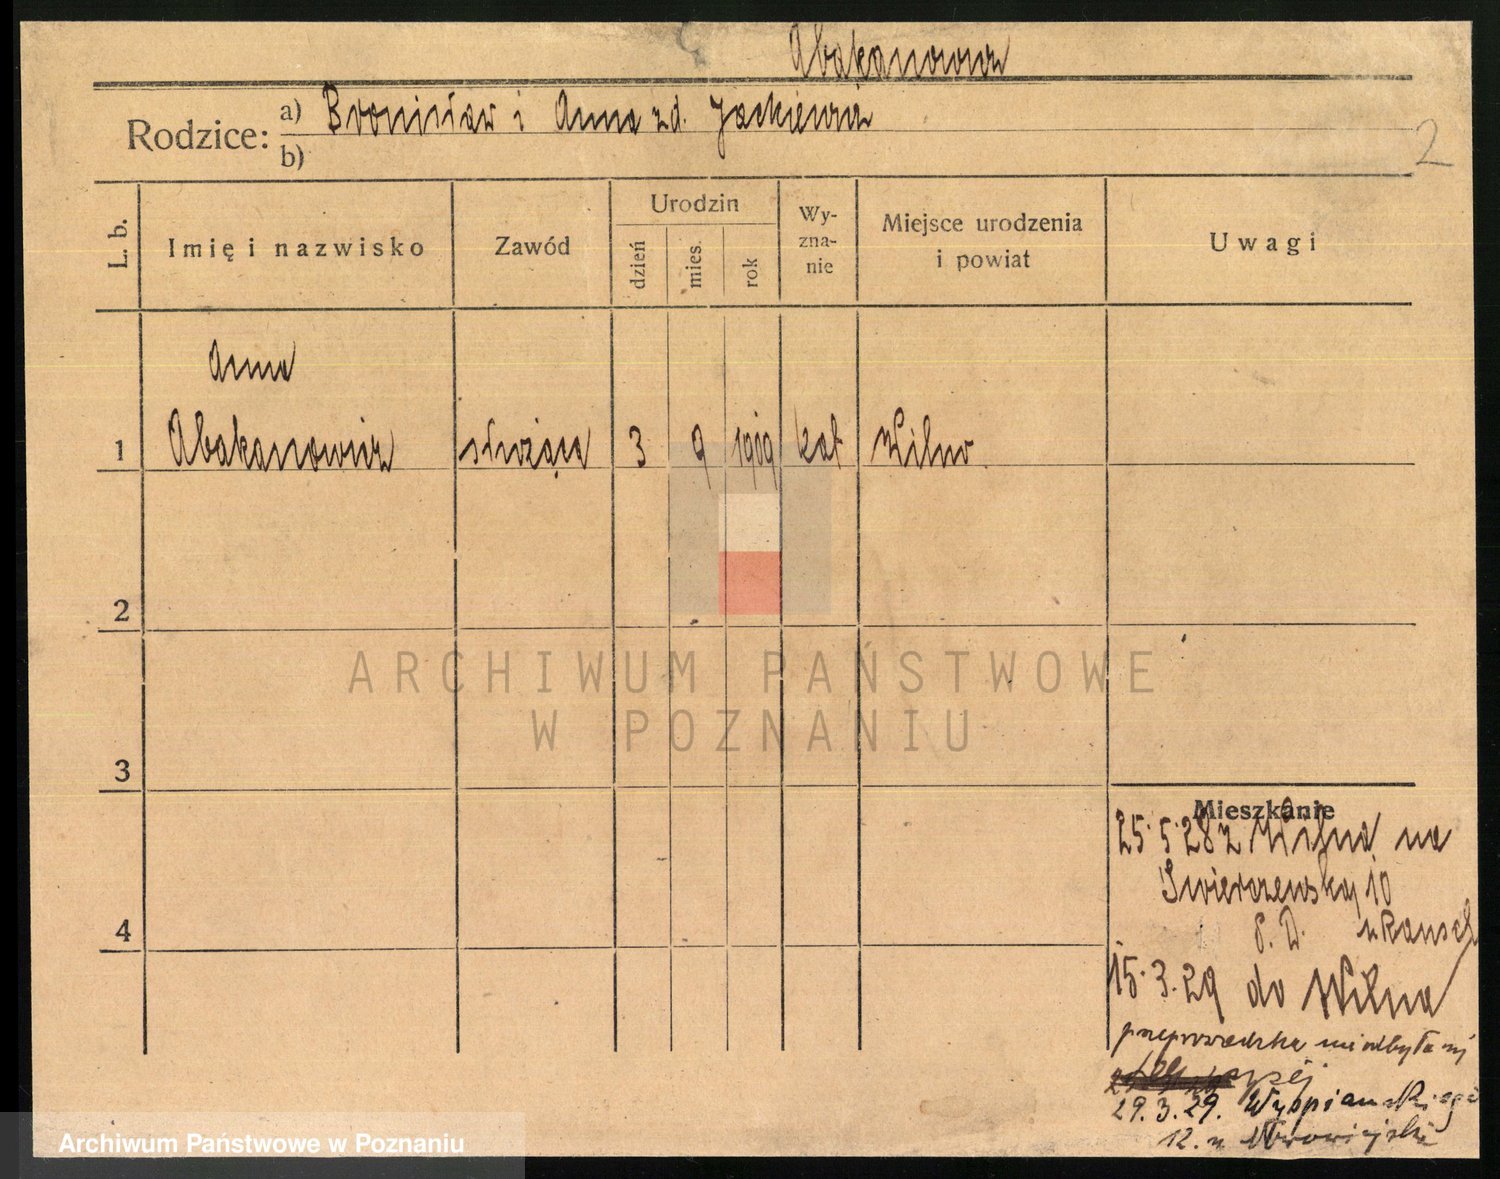 Abakanowicz
Rodzice:
a) Bronisław i Anna zd. Jackiewicz
b)
2
L. b.
Imię i nazwisko
Zawód
Urodzin
dzień
mies.
rok
Wy-
zna-
nie
Miejsce urodzenia
i powiat
Uwagi
Anna
1 Abakanowicz służąca 3 9 1909 kat Wilno
2
3
4
ARCHIWUM PAŃSTWOWE
W POZNANIU
Mieszkanie
25.5.28 z Wilna na
Świerczewską 10
p. D. u Rausch
15.3.29 do Wilna
przeprowadzka nie odbyła się
29.3.29. Wyspiańskiego
12. u
Archiwum Państwowe w Poznaniu